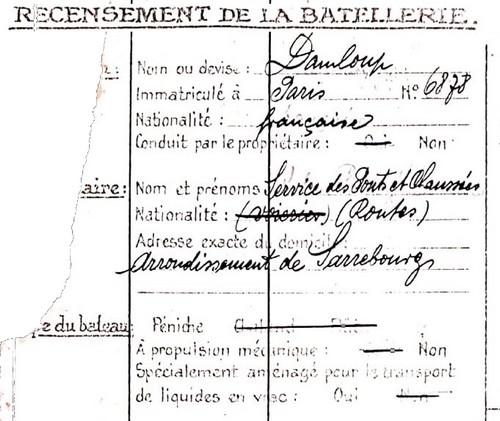 RECENSEMENT DE LA BATELLERIE.
Nom ou devise : Damloup
Immatriculé à Paris N° 6878
Nationalité : française
Conduit par le propriétaire : Oui Non
aire : Nom et prénoms Service des Ponts et Chaussées
Nationalité : (voieries) (Routes)
Adresse exacte du domicile :
Arrondissement de Sarrebourg
pe du bateau : Péniche Chaland
À propulsion mécanique : Non
Spécialement aménagé pour le transport
de liquides en vrac : Oui Non